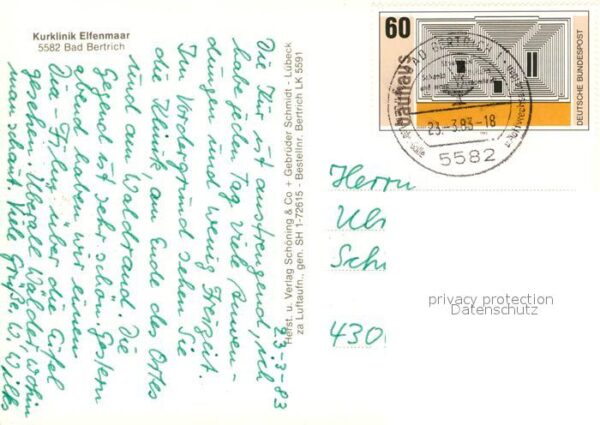 Kurklinik Elfenmaar
5582 Bad Bertrich
23-3-83
Die Kur ist anstrengend, ich
habe jeden Tag viel Anwen-
dungen und wenig Freizeit.
Im Vordergrund sehen Sie
die Klinik, am Ende des Ortes
und am Waldrand. Die
Gegend ist sehr schön. Gestern
abend haben wir einen
Dia-Film über die Eifel
gesehen. Überall Wälder, wohin
man schaut. Viele Grüße W. Wilks
Herst. u. Verlag Schöning & Co + Gebrüder Schmidt - Lübeck
za Luftaufn., gen. SH 1-72615 - Bestellnr. Bertrich LK 5591
60
bauhaus
DEUTSCHE BUNDESPOST
BAD BERTRICH 1
23.-3.83-18
5582
Herrn
privacy protection
Datenschutz